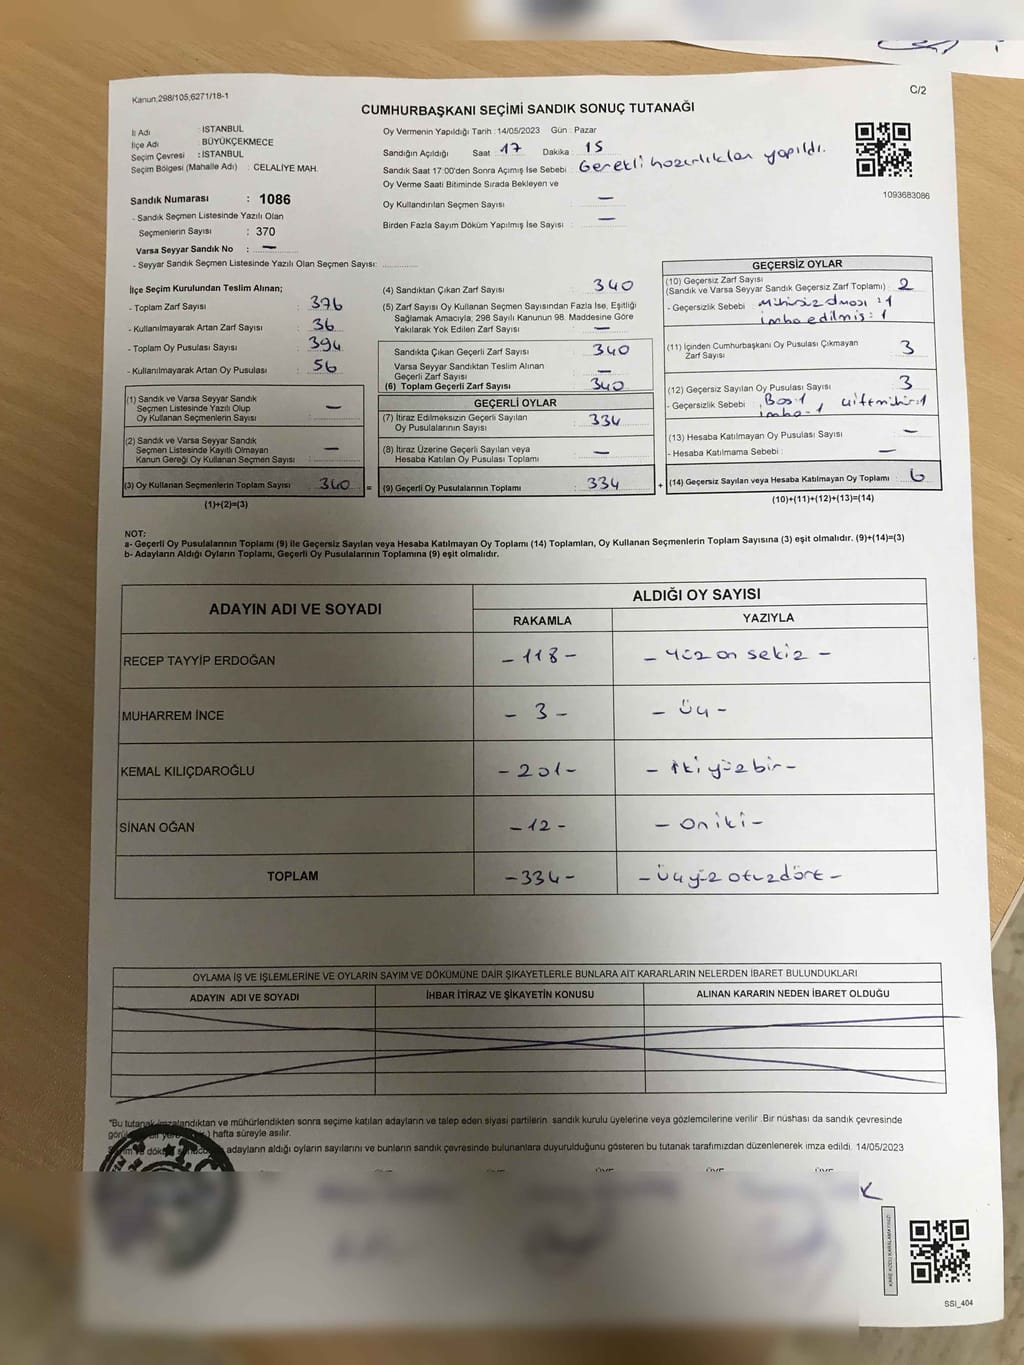 Kanun,298/105,6271/18-1
C/2
CUMHURBAŞKANI SEÇİMİ SANDIK SONUÇ TUTANAĞI
İl Adı : İSTANBUL
İlçe Adı : BÜYÜKÇEKMECE
Seçim Çevresi : İSTANBUL
Seçim Bölgesi (Mahalle Adı) : CELALİYE MAH.
Sandık Numarası : 1086
- Sandık Seçmen Listesinde Yazılı Olan
Seçmenlerin Sayısı : 370
Varsa Seyyar Sandık No : —
- Seyyar Sandık Seçmen Listesinde Yazılı Olan Seçmen Sayısı:
Oy Vermenin Yapıldığı Tarih :14/05/2023 Gün : Pazar
Sandığın Açıldığı Saat : 17 Dakika : 15
Sandık Saat 17:00'den Sonra Açımış İse Sebebi : Gerekli hazırlıklar yapıldı.
Oy Verme Saati Bitiminde Sırada Bekleyen ve
Oy Kullandırılan Seçmen Sayısı : —
Birden Fazla Sayım Döküm Yapılmış İse Sayısı : —
1093683086
İlçe Seçim Kurulundan Teslim Alınan;
- Toplam Zarf Sayısı : 376
- Kullanılmayarak Artan Zarf Sayısı : 36
- Toplam Oy Pusulası Sayısı : 394
- Kullanılmayarak Artan Oy Pusulası : 56
(1) Sandık ve Varsa Seyyar Sandık
Seçmen Listesinde Yazılı Olup
Oy Kullanan Seçmenlerin Sayısı : —
(2) Sandık ve Varsa Seyyar Sandık
Seçmen Listesinde Kayıtlı Olmayan
Kanun Gereği Oy Kullanan Seçmen Sayısı : —
(3) Oy Kullanan Seçmenlerin Toplam Sayısı : 340
(1)+(2)=(3)
=
(4) Sandıktan Çıkan Zarf Sayısı : 340
(5) Zarf Sayısı Oy Kullanan Seçmen Sayısından Fazla İse, Eşitliği
Sağlamak Amacıyla; 298 Sayılı Kanunun 98. Maddesine Göre
Yakılarak Yok Edilen Zarf Sayısı : —
Sandıkta Çıkan Geçerli Zarf Sayısı : 340
Varsa Seyyar Sandıktan Teslim Alınan
Geçerli Zarf Sayısı : —
(6) Toplam Geçerli Zarf Sayısı : 340
GEÇERLİ OYLAR
(7) İtiraz Edilmeksizin Geçerli Sayılan
Oy Pusulalarının Sayısı : 334
(8) İtiraz Üzerine Geçerli Sayılan veya
Hesaba Katılan Oy Pusulası Toplamı : —
(9) Geçerli Oy Pusulalarının Toplamı : 334
+
GEÇERSİZ OYLAR
(10) Geçersiz Zarf Sayısı
(Sandık ve Varsa Seyyar Sandık Geçersiz Zarf Toplamı) : 2
- Geçersizlik Sebebi : Mühürsüz olması :1
imha edilmiş: 1
(11) İçinden Cumhurbaşkanı Oy Pusulası Çıkmayan
Zarf Sayısı : 3
(12) Geçersiz Sayılan Oy Pusulası Sayısı : 3
- Geçersizlik Sebebi : Boş 1
imha-1
(13) Hesaba Katılmayan Oy Pusulası Sayısı : —
- Hesaba Katılmama Sebebi : —
(14) Geçersiz Sayılan veya Hesaba Katılmayan Oy Toplamı : 6
(10)+(11)+(12)+(13)=(14)
NOT:
a- Geçerli Oy Pusulalarının Toplamı (9) ile Geçersiz Sayılan veya Hesaba Katılmayan Oy Toplamı (14) Toplamları, Oy Kullanan Seçmenlerin Toplam Sayısına (3) eşit olmalıdır. (9)+(14)=(3)
b- Adayların Aldığı Oyların Toplamı, Geçerli Oy Pusulalarının Toplamına (9) eşit olmalıdır.
ADAYIN ADI VE SOYADI
ALDIĞI OY SAYISI
RAKAMLA YAZIYLA
RECEP TAYYİP ERDOĞAN -118- - Yüz on sekiz -
MUHARREM İNCE - 3 - - Üç -
KEMAL KILIÇDAROĞLU -201- - İki yüz bir -
SİNAN OĞAN -12- - on iki -
TOPLAM -334- - Üçyüz otuzdört -
OYLAMA İŞ VE İŞLEMLERİNE VE OYLARIN SAYIM VE DÖKÜMÜNE DAİR ŞİKAYETLERLE BUNLARA AİT KARARLARIN NELERDEN İBARET BULUNDUKLARI
ADAYIN ADI VE SOYADI İHBAR İTİRAZ VE ŞİKAYETİN KONUSU ALINAN KARARIN NEDEN İBARET OLDUĞU
*Bu tutanak imzalandıktan ve mühürlendikten sonra seçime katılan adayların ve talep eden siyasi partilerin sandık kurulu üyelerine veya gözlemcilerine verilir. Bir nüshası da sandık çevresinde
hafta süreyle asılır.
adayların aldığı oyların sayılarını ve bunların sandık çevresinde bulunanlara duyurulduğunu gösteren bu tutanak tarafımızdan düzenlenerek imza edildi. 14/05/2023
SSI_404